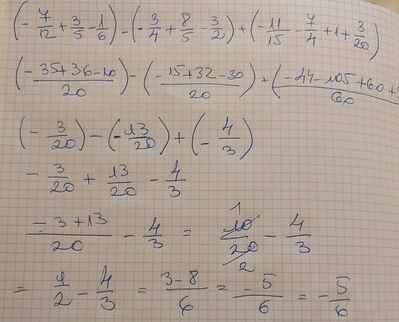 (-7/12 + 3/5 - 1/6) - (-3/4 + 8/5 - 3/2) + (-11/15 - 7/4 + 1 + 3/20)
(-35+36-10/20) - (-15+32-30/20) + (-44-105+60+/60
(-3/20) - (-13/20) + (-4/3)
-3/20 + 13/20 - 4/3
-3+13/20 - 4/3 = 10/20 1/2 - 4/3
= 1/2 - 4/3 = 3-8/6 = -5/6 = -5/6